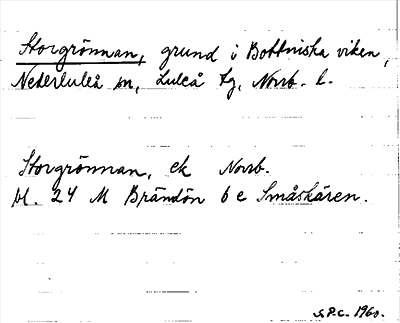 Storgrönnan, grund i Bottniska viken,
Nederluleå sn, Luleå tg, Norrb. l.
Storgrönnan, ek Norrb.
bl. 24 M Brändön 6 e Småskären.
S.P.C. 1960.